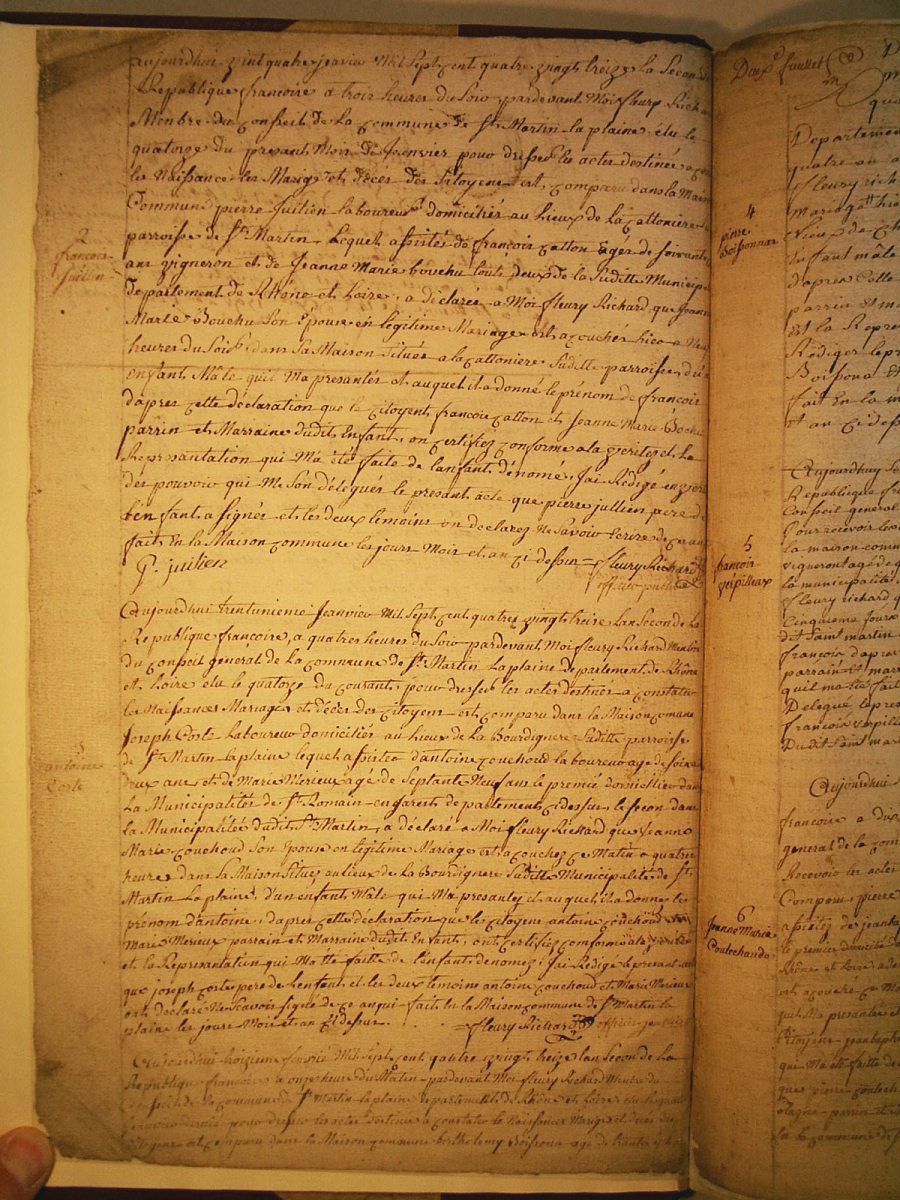 aujourdhui vint quatre jeanvier Mil Sept cent quatre vingt treize la Second
Republique francoire a troir heures du Soir pardevant Moi fleury Richard
Menbre du Conseit De La Commune De St Martin la plaine élu le
quatorze du presant Moir De jenvier pour dresser les actes destinée a
les Naissance les Marige et Déces Des Sitoyens est comparu dans la Maison
Commune pierre juilien Laboureur domiciliés au Lieux de la Cattoniere
parroisse de St Martin Lequel assistés de françoir Catton agés de soixante
ans vigneron et de Jeanne Marie bouchu toute deux de la Suditte Municip
Departement De Rhône et Loire, a déclarée a Moi fleury Richard que Jeanne
Marie Bouchu Son Epouse en légitime Mariage est acouchés hier a Neuf
heures du Soir dans Sa Maison Située a la Cattoniere Suditte parroisse d'un
Enfant Mâle quil Ma presantés et auquel il a donné le prénom de francoir
dapres cette déclaration que le Citoyent francoir Catton et Jeanne Marie Bochu
parrin et Marraine dudit Enfant, on certifiez conforme a la verités et la
Représantation qui Ma été faite de lanfant dénomé, jai Rédigé en vertu
des pouvoir qui Me Son délégués le presant acte que pierre jullien pere de
lenfant a signés et les deux temoins on déclarez ne Savoir Ecrire de ce
fait En la Maison commune les jours Moir et an ci dessus = fleury Richard
P. juilien
officier public
2
francoir
juillin
Aujourdhui trentunieme Jeanvier Mil Sept cent quatre vingt treize lan Second de la
Republique françoire, a quatre heures du Soir pardevant Moi fleury Richard Menbre
du Conseit general de la commune de St Martin La plaine departement de Rhône
et Loire élu le quatorze du courant, pour dresser les actes destinés a constater
les Naissances Mariages et déces des Citoyens est comparu dans la Maison comune
Joseph Corte Laboureur domiciliés au Lieux de la Bourdignere Suditte parroisse
de St Martin la plaine lequel assistes dantoine Couchoud laboureur agé de soixante
deux ans et de Marie Merieux agé de Septante Neuf ans le premié domicillier dan
La Municipalités de St Romain en jarest departement ci dessus le secon dans
la Municipalitée dudit St Martin, a déclaré a Moi fleury Richard que Jeanne
Marie Couchoud Son Epouse en légitime Mariage est acouchez ce Matin a quatre
heure dans sa Maison Situez au Lieux de la Bourdignere Suditte Municipalité de St
Martin La plaine, d'un enfant Mâle qui Ma presantez et auquel il a donnez le
prénom dantoine, dapres cette déclaration que le Citoyens antoine Couchoud
Marie Merieux parrain et Marraine dudit Enfant, ont Certifiez conforme a la verité
et la Représantation qui Ma été faitte de lenfant denomez, jai Rédigé le presant
que joseph Corte pere de lenfant et les deux temoins antoine Couchoud et Marie Merieux
ont déclaré ne Savoir signé de ce an qui fait En la Maison commune de St Martin la
plaine les jours Moir et an ci dessus = fleury Richard officier
3
antoine
Corte
Aujourdhui troizieme fevrié Mil Sept cent quatre vingt treize lan Second de la
Republique francoire a onze heure du Matin pardevant Moi fleury Richard Menbre du
de la commune de St Martin la plaine Departement de Rhône et Loire élu le quatorze
jeanvier pour dresser les actes destinés a constater les Naissances Mariges et déces des
est comparu dans la Maison commune barthelemy Boisson agé de trante
Deux feuillet
4
pierre
Boissonnat
Departement
quatre
fleury rich
mariag
Lieux de
Enfant mâle
dapres cette
parrin et m
et la Repres
Rédiger le pr
Boissona et
fait en la m
et an ci dess
5
francoir
verpilleux
Aujourdhuy
Republique fr
Conseil general
Pour recevoir les
la maison comm
vigneront agé de
la municipalité
fleury richard q
Cinquieme jour
dit saint martin
françoir dapres
parrain et marr
quil ma été fait
Délégué le pres
francoir verpill
Dudit saint mar
6
Jeanne Marie
Coutechaude
Aujourdhui
francoire a dix
general de la com
Recevoir les actes
Comparu pierre
assistez de jean
le premier domicilié
Rhône et Loire a de
est acouche ce Ma
qui Ma presantez et
Citoyens jean bapt
qui Ma été faitte de
que pierre coutech